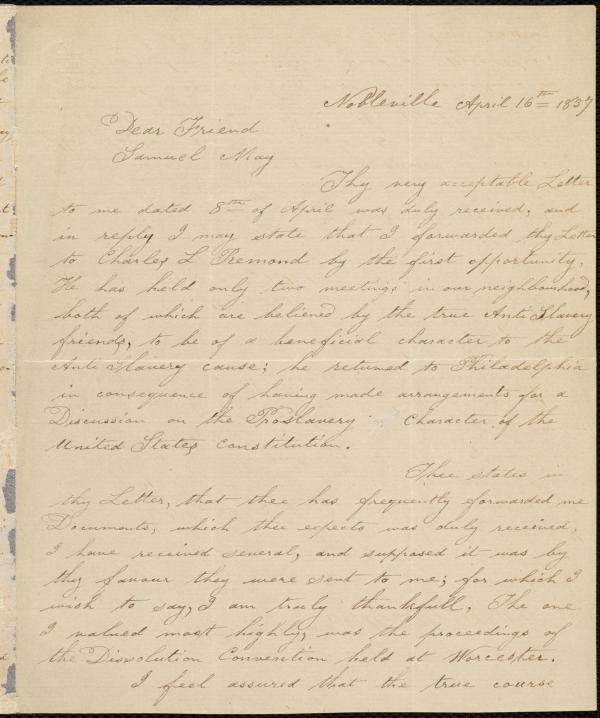 Nobleville April 16th 1857
Dear Friend
Samuel May
Thy very acceptable Letter
to me dated 8th of April was duly received, and
in reply I may state that I forwarded thy Letter
to Charles L Remond by the first opportunity.
He has held only two meetings in our neighbourhood,
both of which are believed by the true Anti Slavery
friends, to be of a beneficial character to the
Anti Slavery cause; he returned to Philadelphia
in consequence of having made arrangements for a
Discussion on the ProSlavery Character of the
United States Constitution.
Thee states in
thy Letter, that thee has frequently forwarded me
Documents, which thee expects was duly received,
I have received several, and supposed it was by
thy favour they were sent to me; for which I
wish to say, I am truly thankfull. The one
I valued most highly, was the proceedings of
the Dissolution Convention held at Worcester.
I feel assured that the true course